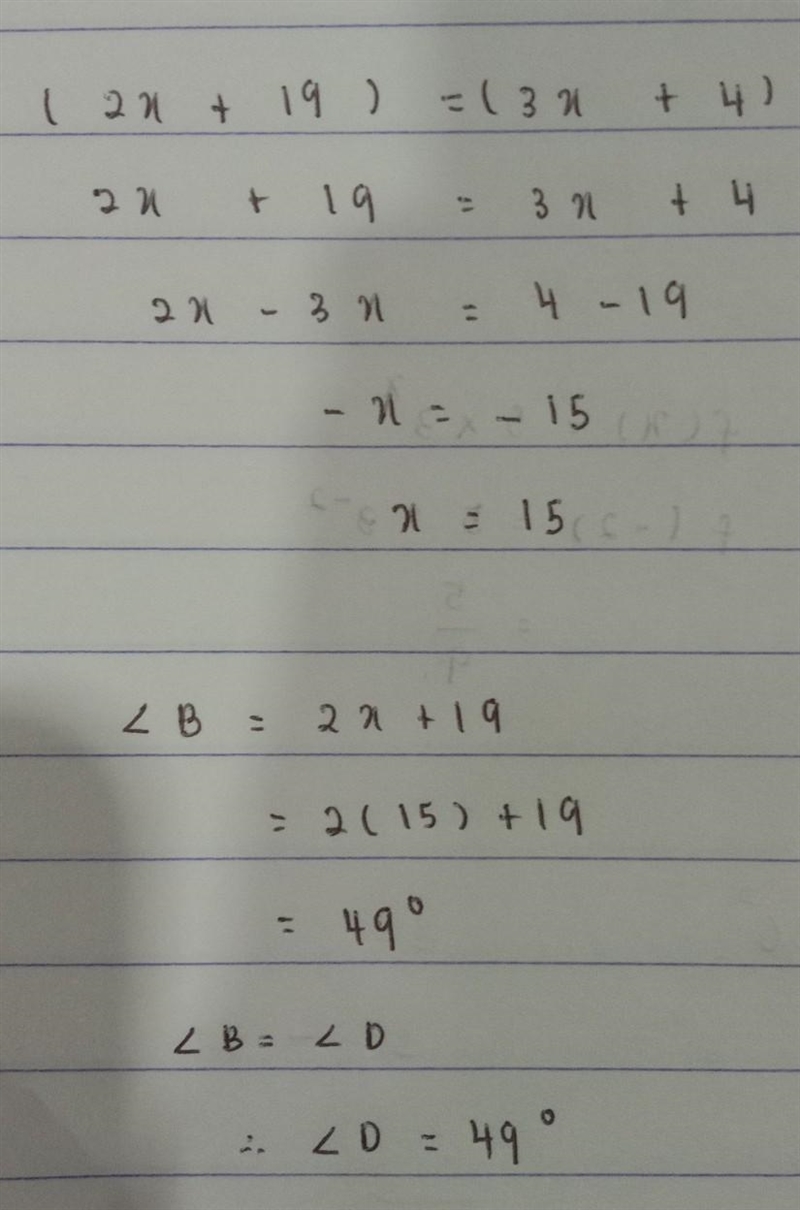 ( 2x + 19 ) = ( 3x + 4 )
2x + 19 = 3x + 4
2x - 3x = 4 - 19
- x = - 15
x = 15
∠ B = 2x + 19
= 2 ( 15 ) + 19
= 49°
∠ B = ∠ D
∴ ∠ D = 49°